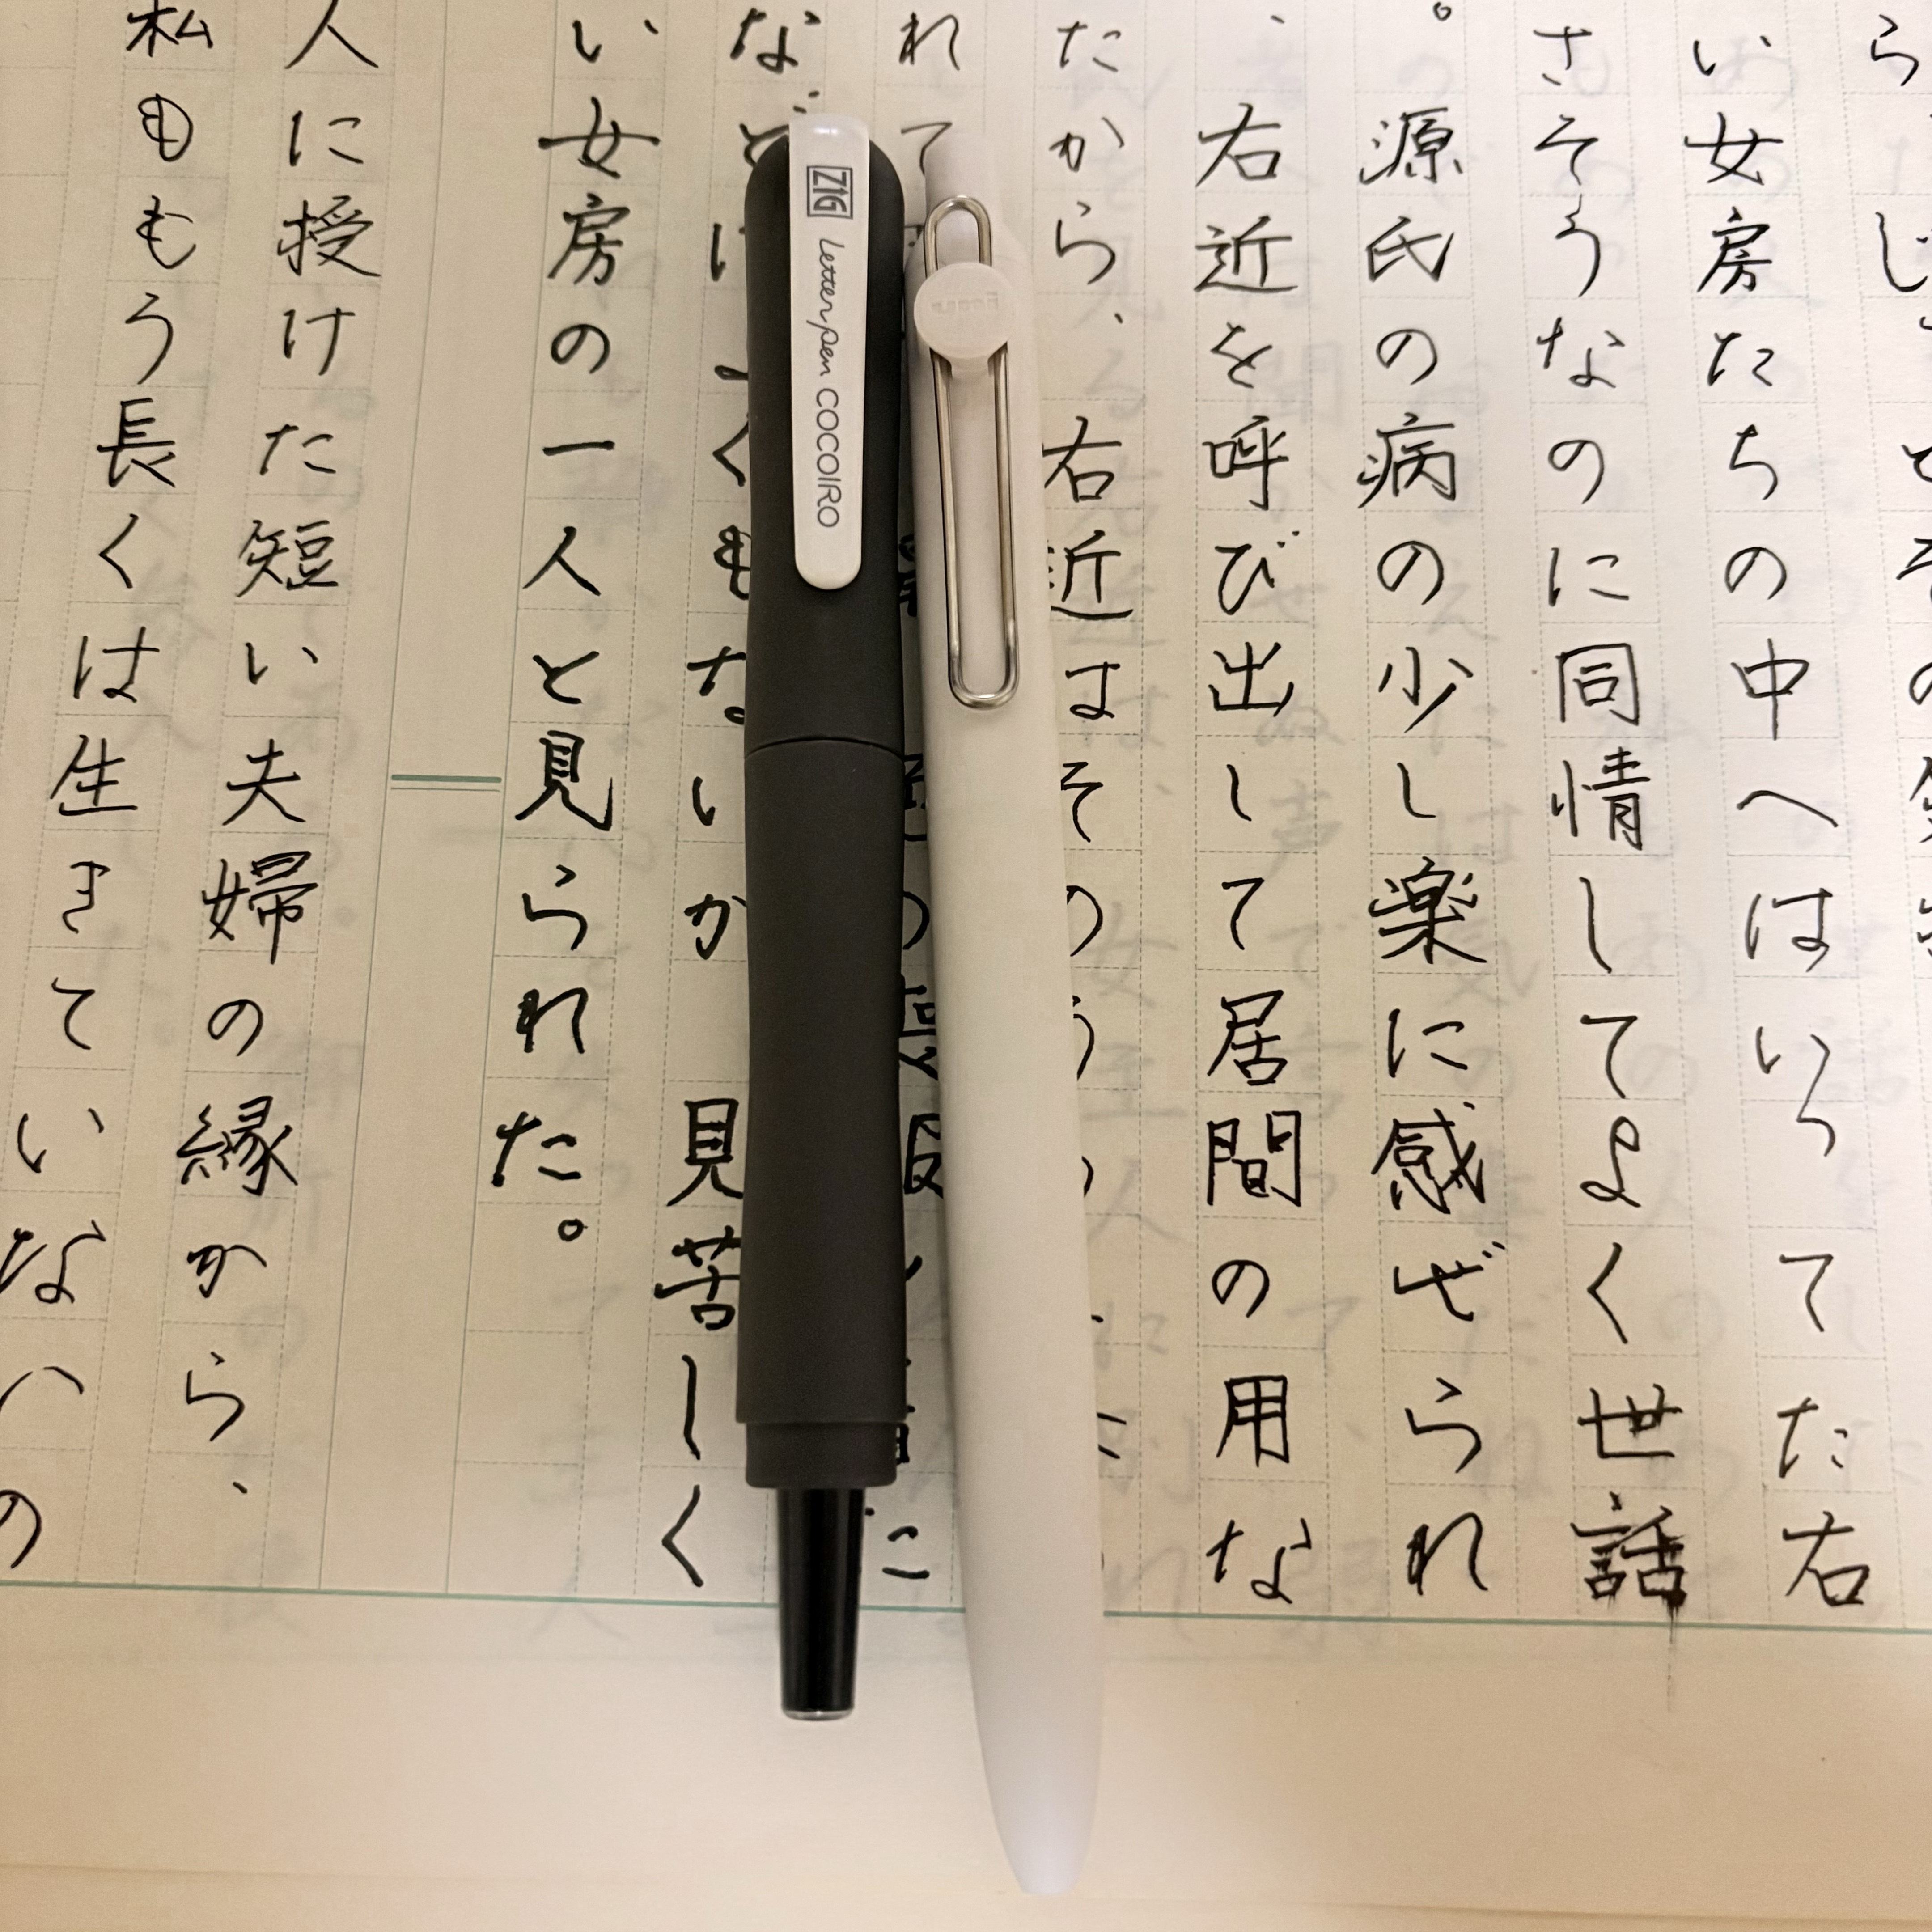 い女房たちの中へはいってた右
さそうなのに同情してよく世話
。源氏の病の少し楽に感ぜられ
、右近を呼び出して居間の用な
たから、右近はその
れて
など くもないか 見苦しく
い女房の一人と見られた。
人に授けた短い夫婦の縁から、
私ももう長くは生きていないの
ZIG Letter pen COCOIRO